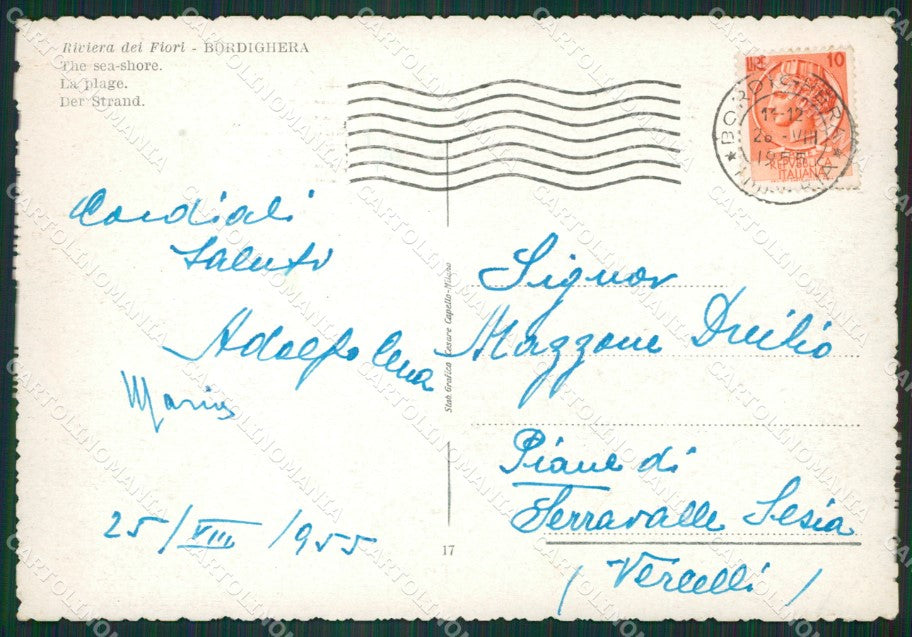 Riviera dei Fiori - BORDIGHERA
The sea-shore.
La plage.
Der Strand.
LIRE 10
REPUBBLICA
ITALIANA
BORDIGHERA
11-12
28 - VIII
1955
Cordiali
Saluti
Adolfo
Maria
25/VIII/1955
Stab. Grafico Cesare Capello - Milano
17
Signor
Mazzone Duilio
Piane di
Serravalle Sesia
(Vercelli)
CARTOLINOMANIA